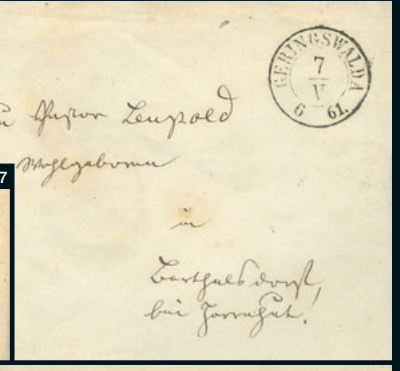 GERINGSWALDA
7
V
6 61.
Pastor Leupold
Wohlgeboren
in
Berthelsdorf,
bei Herrnhut.
7